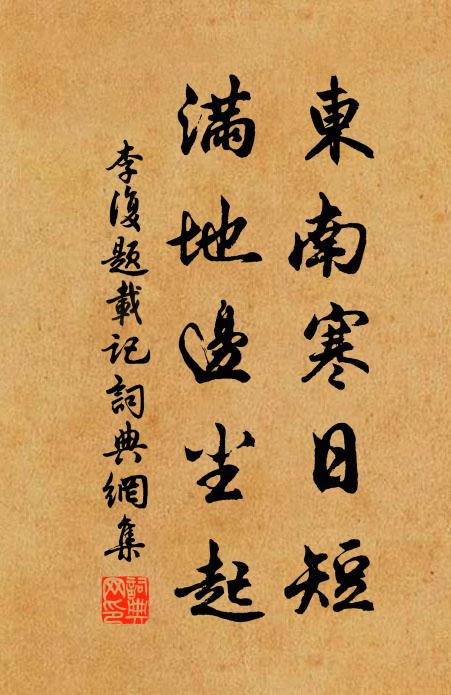 東南寒日短
滿地邊尘起
李復題載記詞典網集
詞典网印